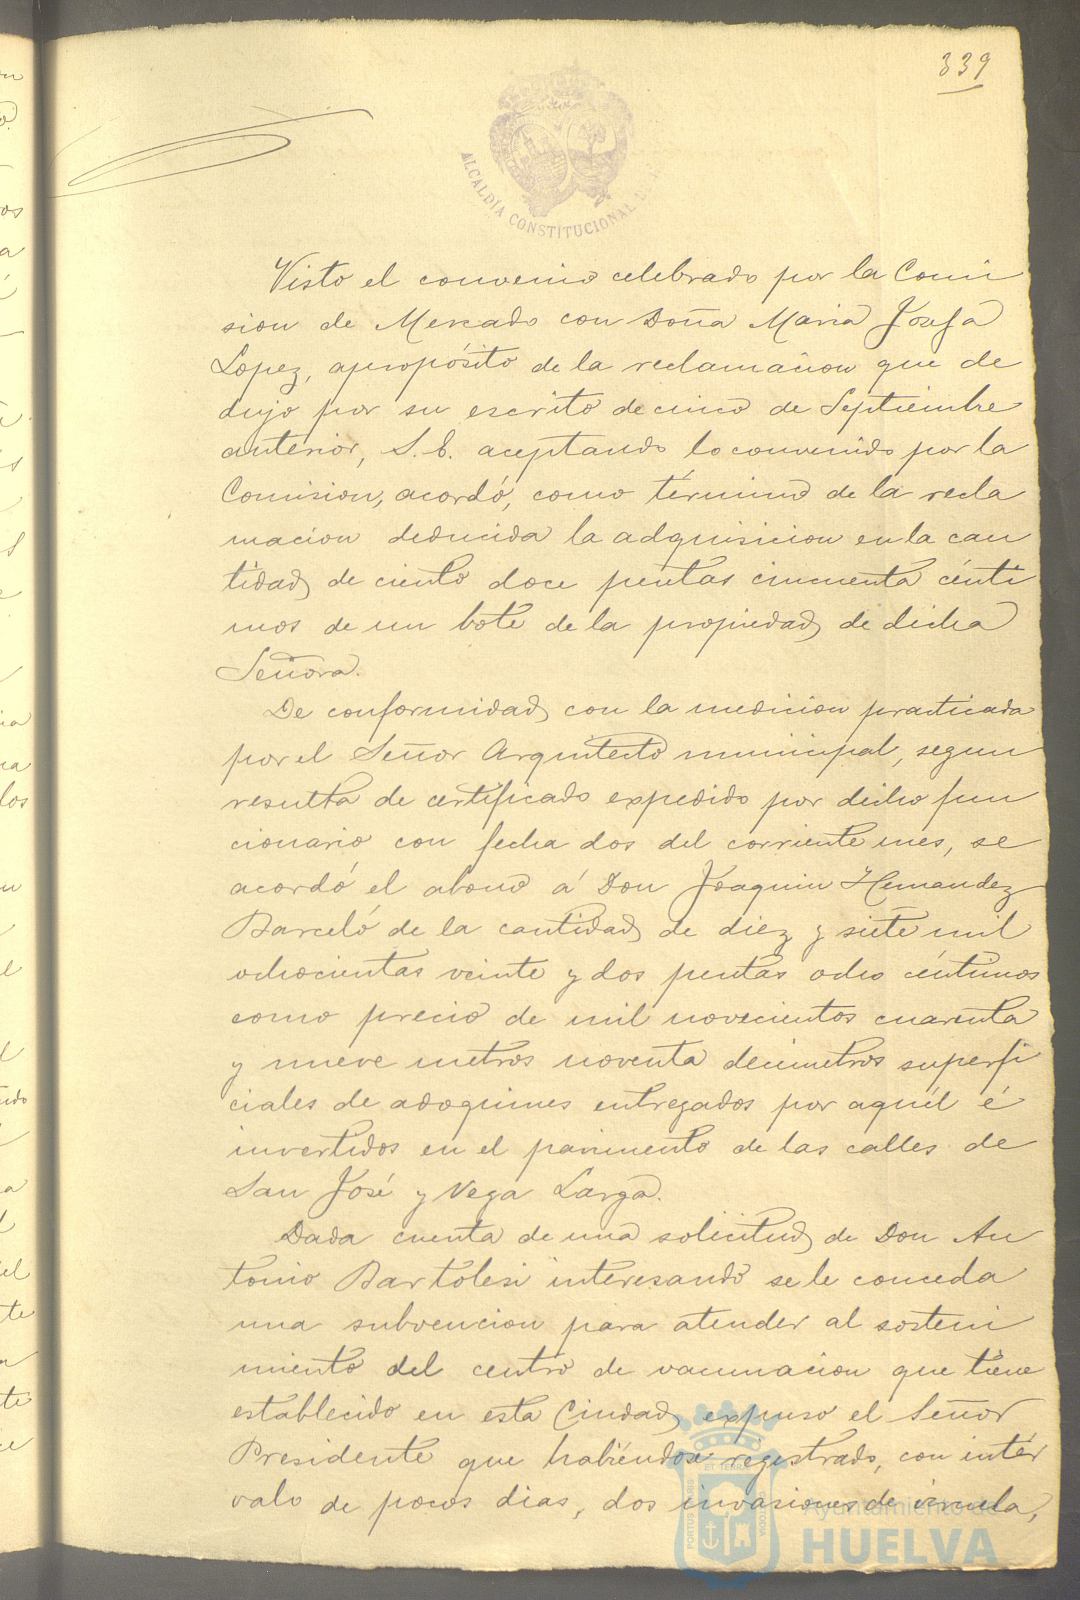 339
ALCALDÍA CONSTITUCIONAL
Visto el convenio celebrado por la Comi
sion de Mercado con Doña Maria Josefa
Lopez, apropósito de la reclamacion que de
dujo por su escrito de cinco de Septiembre
anterior, S. E. aceptando lo convenido por la
Comision, acordó, como término de la recla
macion deducida la adquisicion en la can
tidad de ciento doce pesetas cincuenta cénti
mos de un bote de la propiedad de dicha
Señora.
De conformidad con la medicion practicada
por el Señor Arquitecto municipal, segun
resulta de certificado expedido por dicho fun
cionario con fecha dos del corriente mes, se
acordó el abono á Don Joaquin Hernandez
Barceló de la cantidad de diez y siete mil
ochocientas veinte y dos pesetas ocho céntimos
como precio de mil novecientos cuarenta
y nueve metros noventa decimetros superfi
ciales de adoquines entregados por aquél é
invertidos en el pavimento de las calles de
San José y Vega Larga.
Dada cuenta de una solicitud de Don An
tonio Bartolesi interesando se le conceda
una subvencion para atender al sosteni
miento del centro de vacunacion que tiene
establecido en esta Ciudad, expuso el Señor
Presidente que habiéndose registrado, con intér
valo de pocos dias, dos invasiones de viruela,
Ayuntamiento de
HUELVA